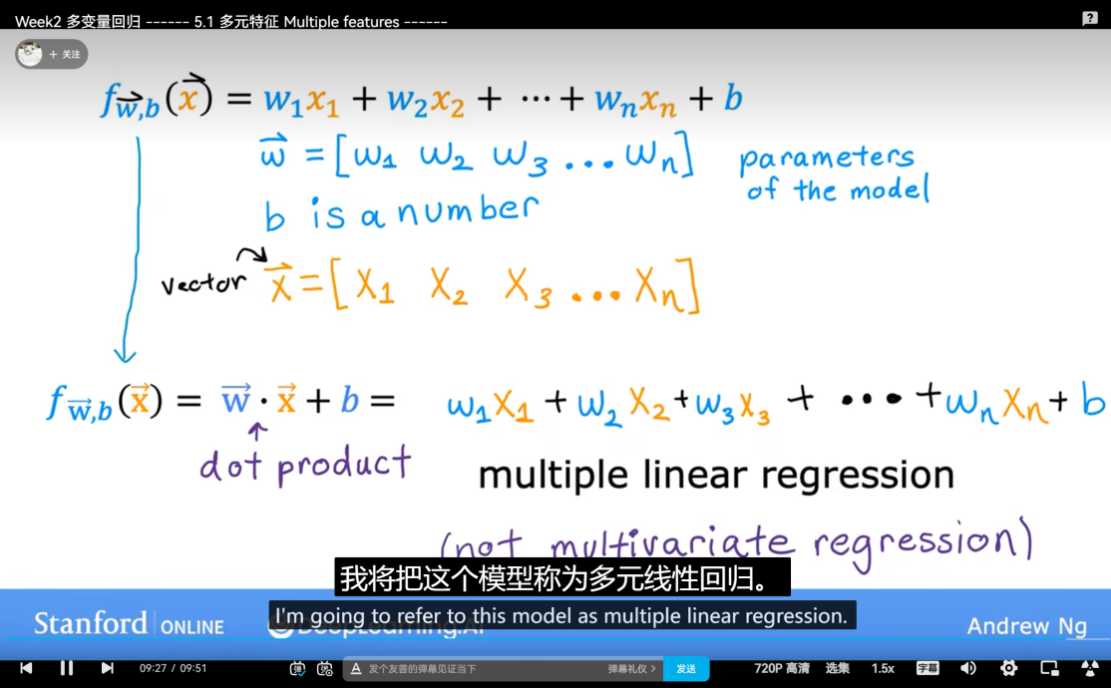 Week2 多变量回归 ------ 5.1 多元特征 Multiple features ------
+ 关注
f_w⃗,b(x⃗) = w₁x₁ + w₂x₂ + ⋯ + wₙxₙ + b
w⃗ = [w₁ w₂ w₃ ... wₙ]
parameters
of the model
b is a number
vector x⃗ = [x₁ x₂ x₃ ... xₙ]
f_w⃗,b(x⃗) = w⃗ · x⃗ + b = w₁x₁ + w₂x₂ + w₃x₃ + ••• + wₙxₙ + b
dot product
multiple linear regression
(not multivariate regression)
我将把这个模型称为多元线性回归。
I'm going to refer to this model as multiple linear regression.
Stanford ONLINE
DeepLearning.AI
Andrew Ng
09:27 / 09:51
发个友善的弹幕见证当下
弹幕礼仪 >
发送
720P 高清
选集
1.5x
字幕